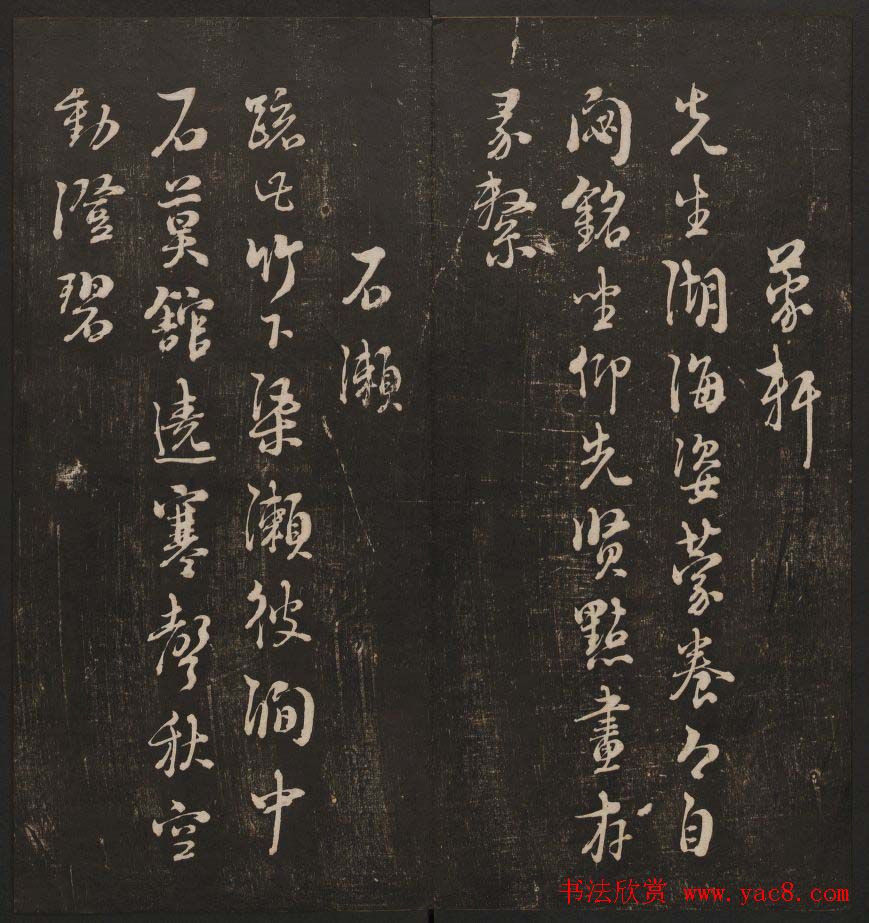 蒙軒
先生湖海姿蒙養今自
閟銘坐仰先賢點畫存
彖繫
石瀨
踈此竹下渠瀨彼澗中
石莫舘遶寒聲秋空
動澄碧
书法欣赏 www.yac8.com